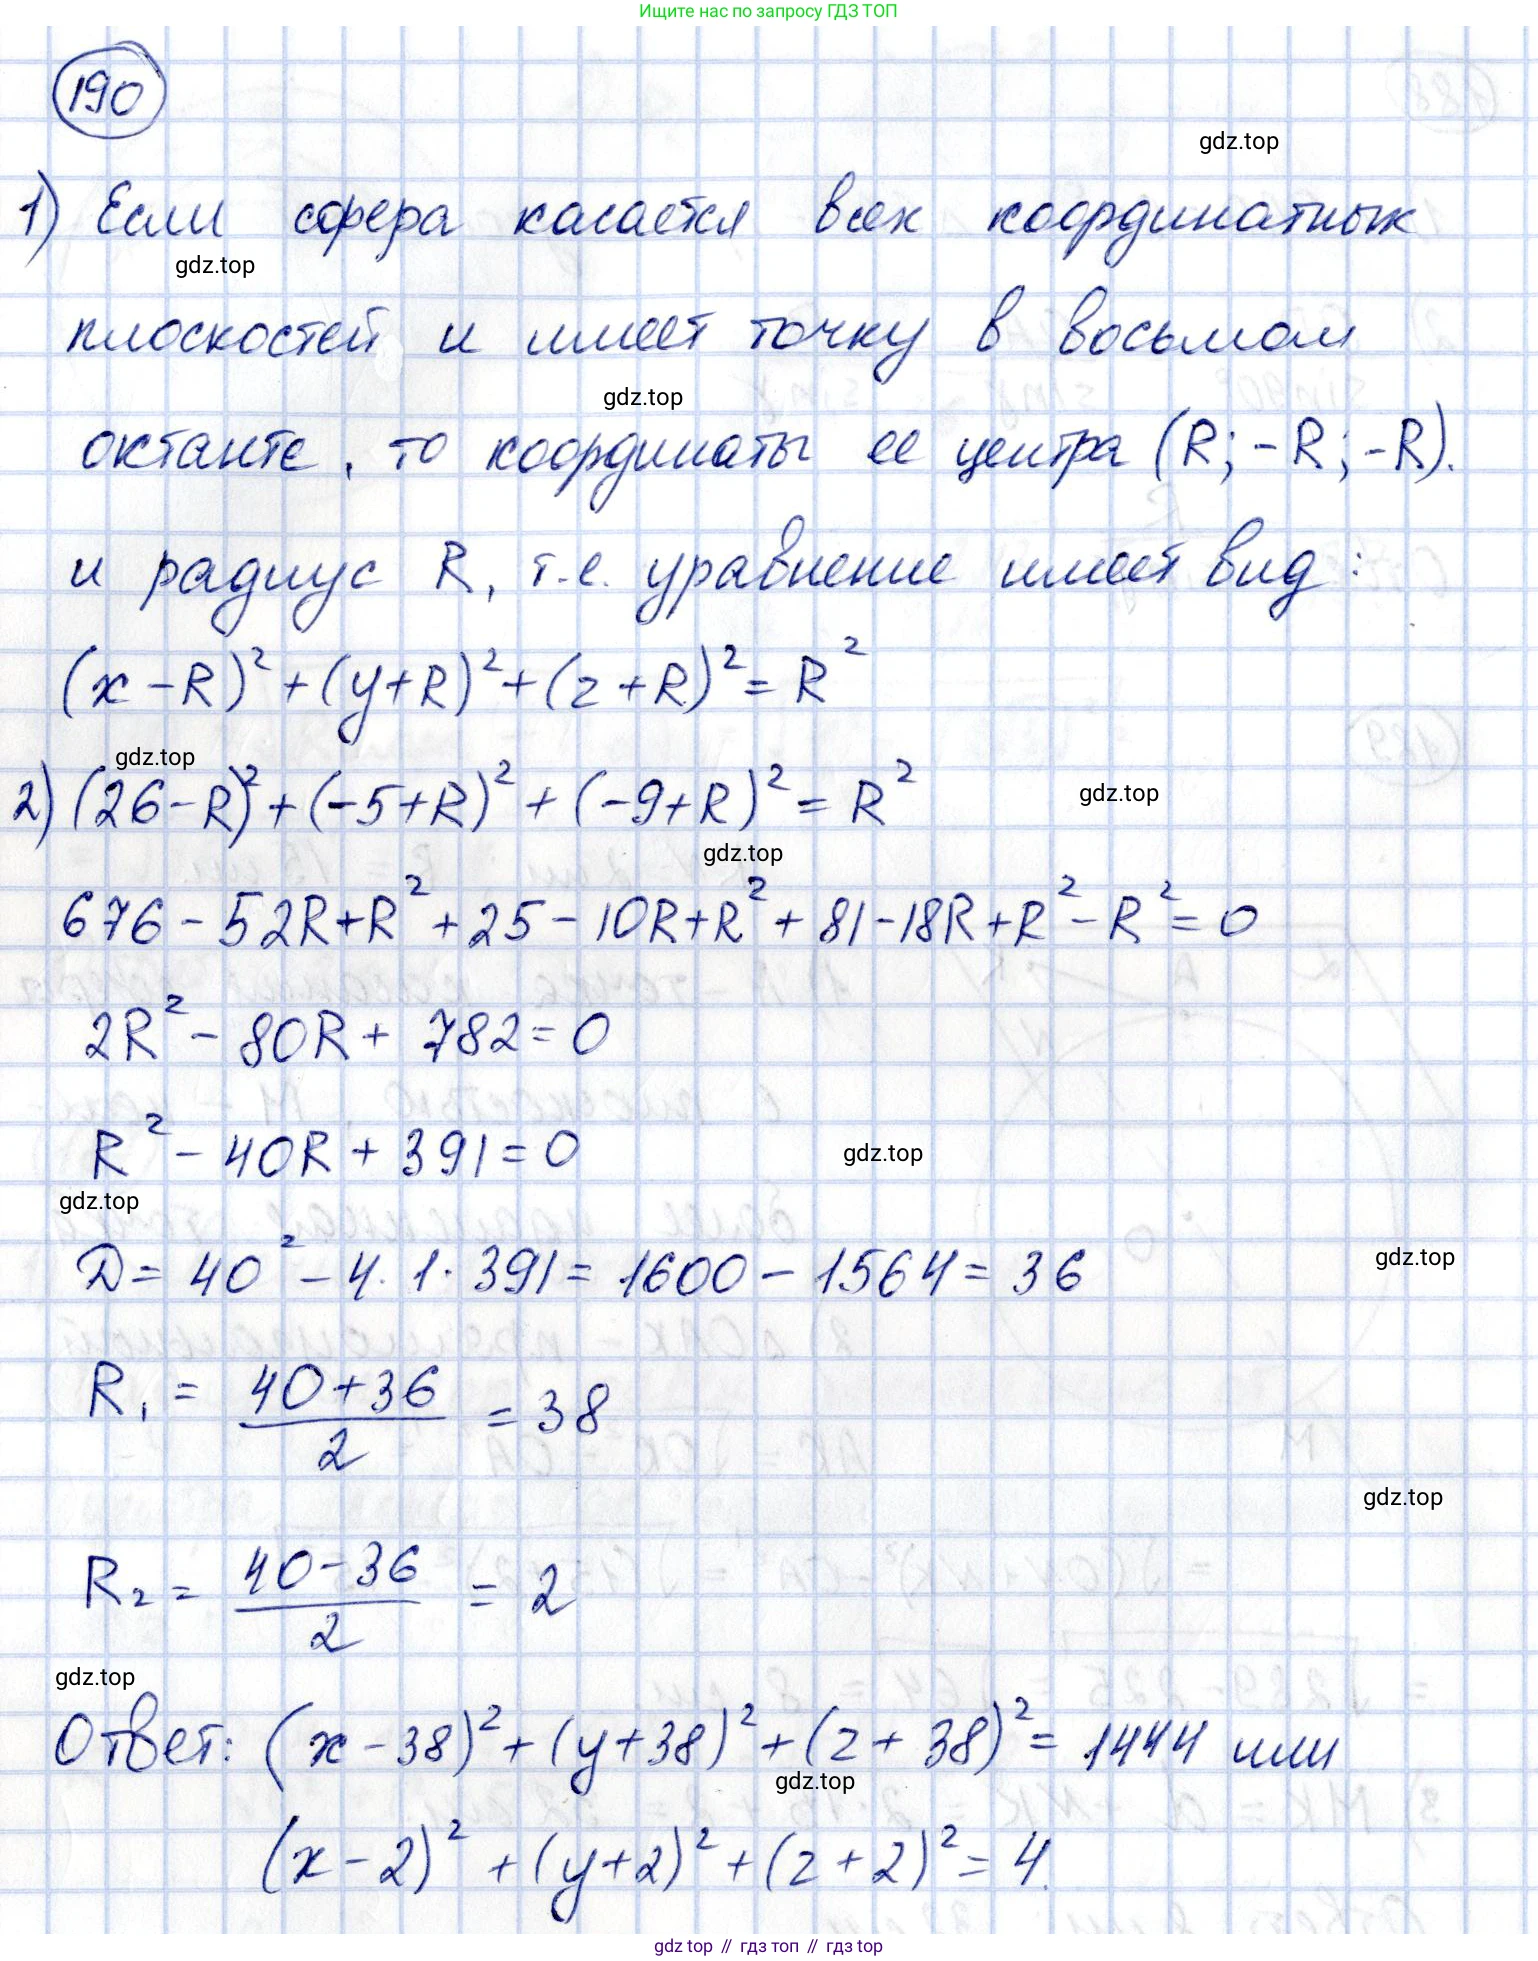 Ищите нас по запросу ГДЗ ТОП
190
gdz.top
1) Если сфера касается всех координатных
gdz.top
плоскостей и имеет точку в восьмом
gdz.top
октанте, то координаты ее центра (R; -R; -R).
и радиус R, т.е. уравнение имеет вид:
(x - R)² + (y + R)² + (z + R)² = R²
gdz.top
2) (26 - R)² + (-5 + R)² + (-9 + R)² = R²
gdz.top
gdz.top
676 - 52R + R² + 25 - 10R + R² + 81 - 18R + R² - R² = 0
2R² - 80R + 782 = 0
R² - 40R + 391 = 0
gdz.top
gdz.top
D = 40² - 4 · 1 · 391 = 1600 - 1564 = 36
gdz.top
R₁ = (40 + 36)/2 = 38
gdz.top
R₂ = (40 - 36)/2 = 2
gdz.top
Ответ: (x - 38)² + (y + 38)² + (z + 38)² = 1444 или
gdz.top
(x - 2)² + (y + 2)² + (z + 2)² = 4.
gdz.top // гдз топ // гдз.top